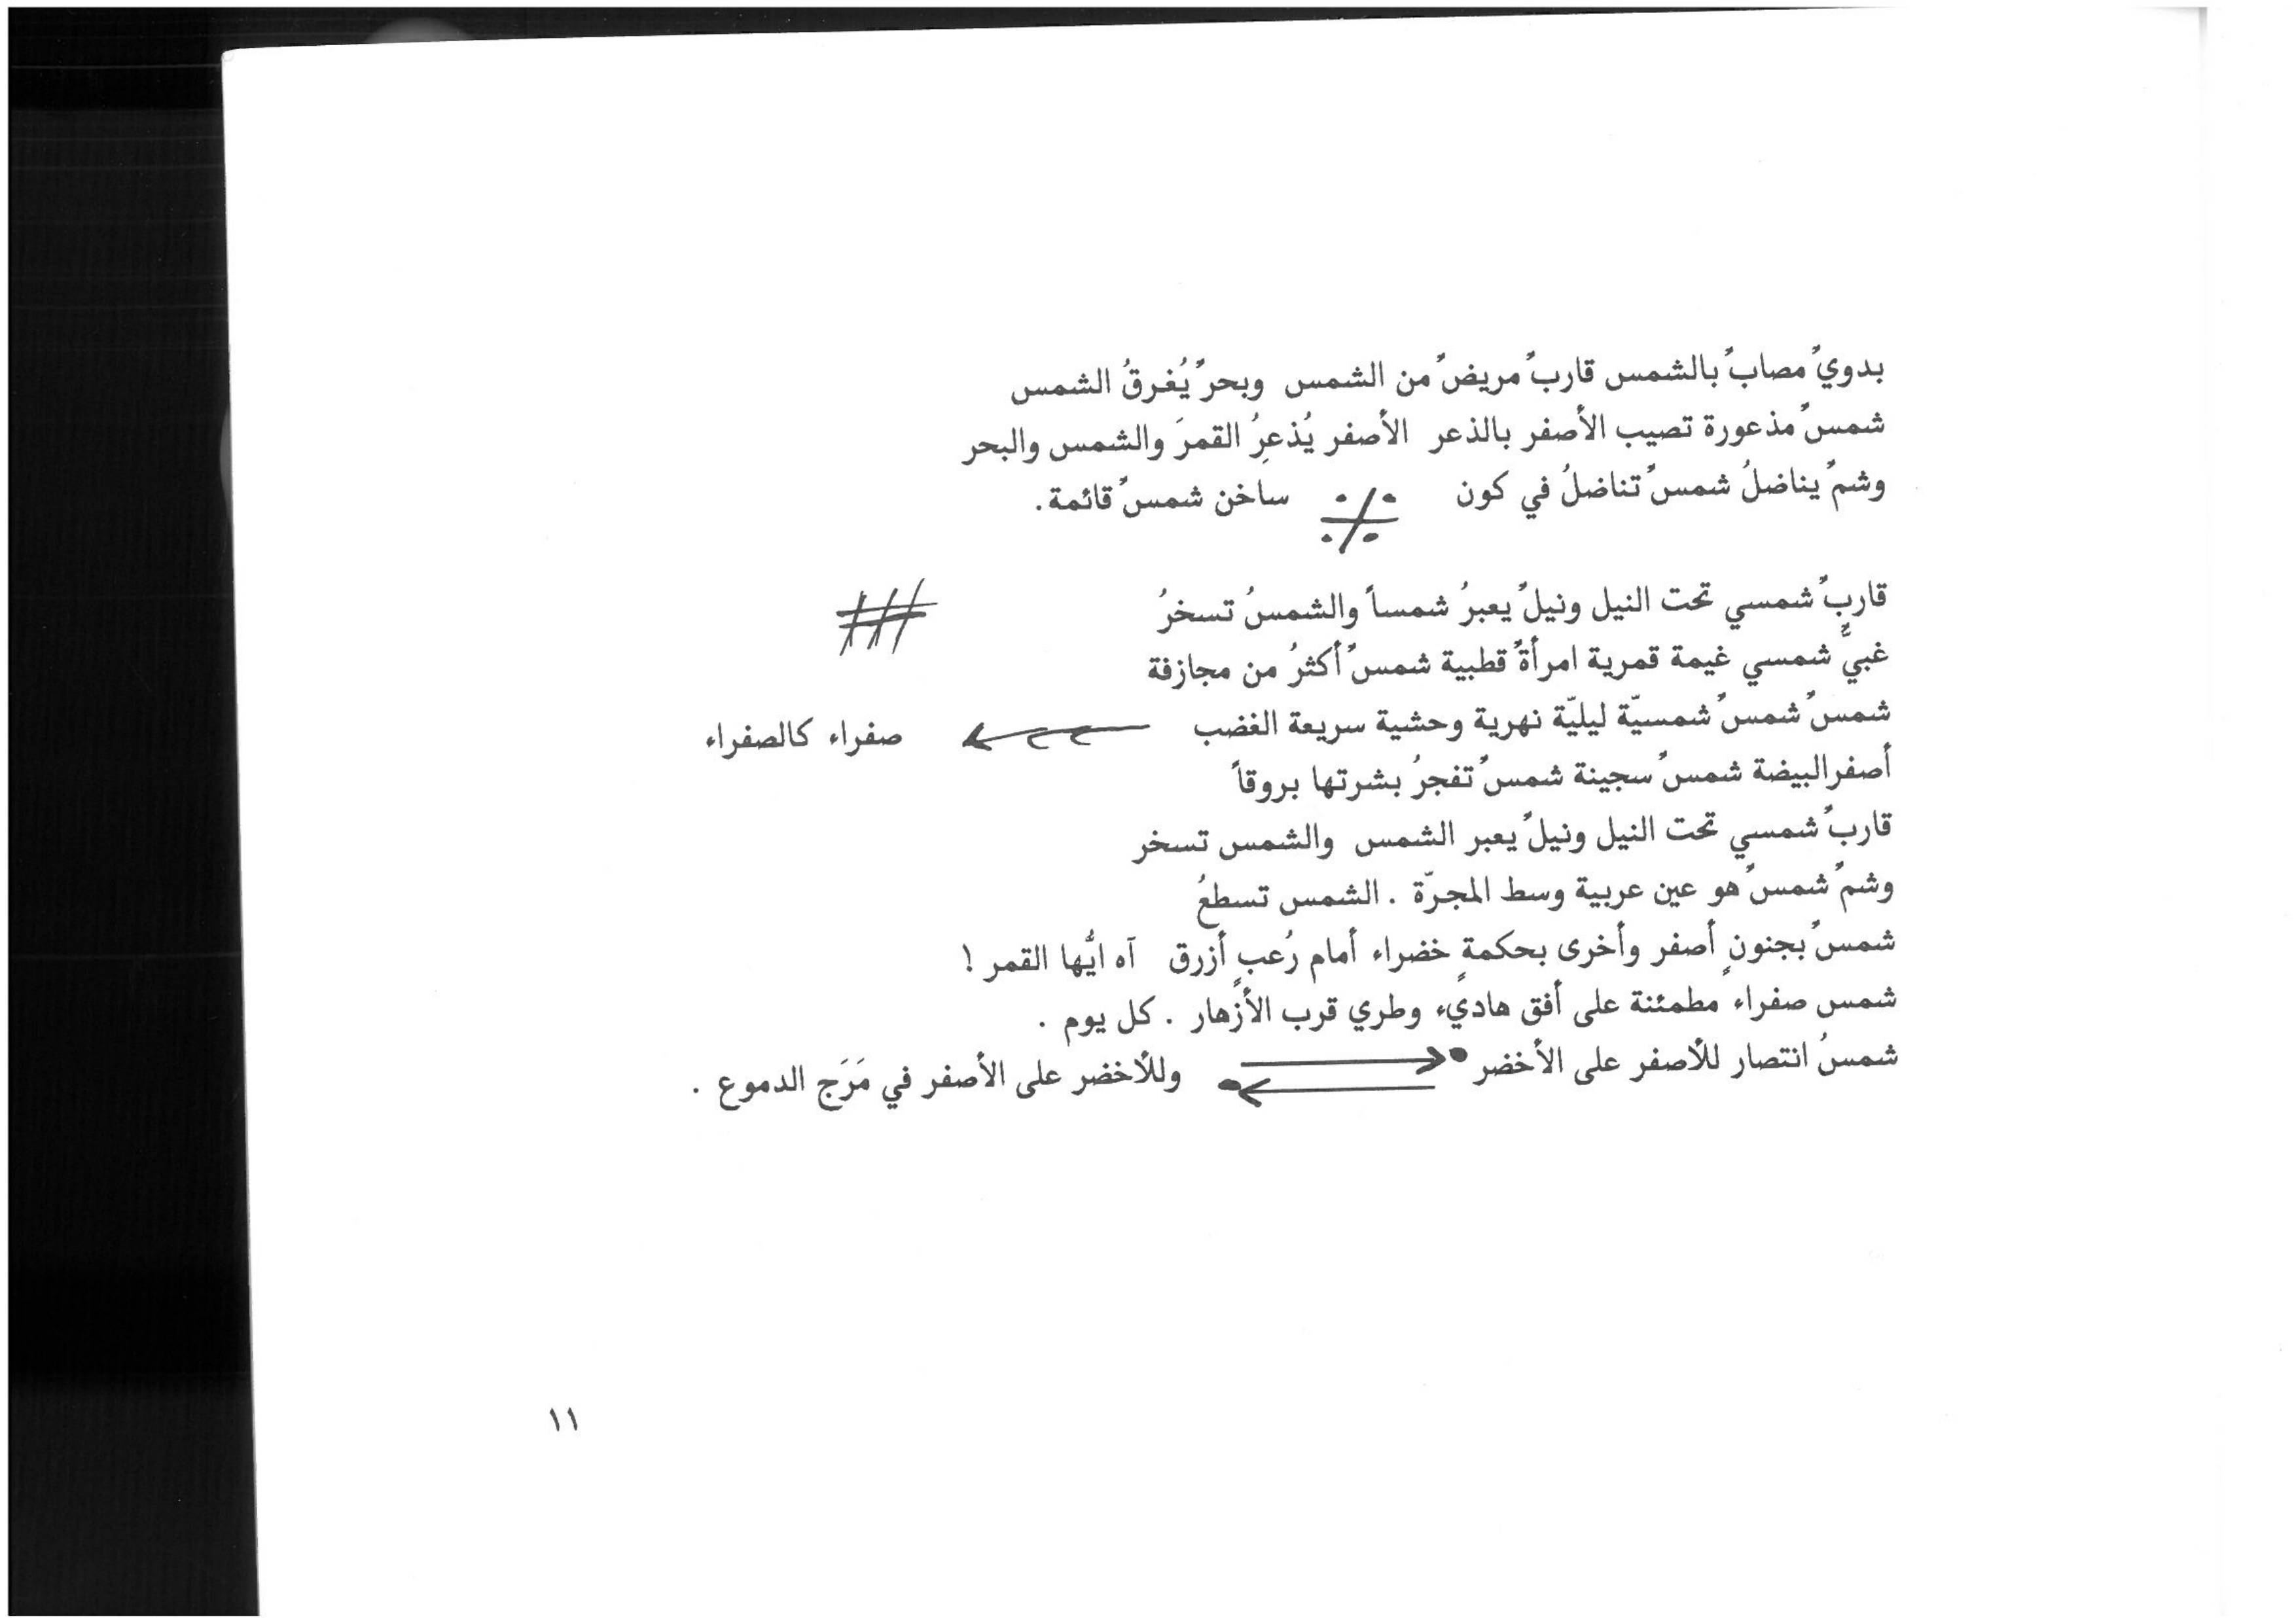 بدويٌ مصابٌ بالشمس قاربٌ مريضٌ من الشمس وبحرٌ يُغرقُ الشمس
شمسٌ مذعورة تصيب الأصفر بالذعر الأصفر يُذعِرُ القمرَ والشمس والبحر
وشمٌ يناضلُ شمسٌ تناضلُ في كون ساخن شمسٌ قائمة.
قاربٌ شمسي تحت النيل ونيلٌ يعبرُ شمساً والشمسُ تسخرُ
غبيٌّ شمسي غيمة قمرية امرأةٌ قطبية شمسٌ أكثرُ من مجازفة
شمسٌ شمسٌ شمسيّة ليليّة نهرية وحشية سريعة الغضب صفراء كالصفراء
أصفرالبيضة شمسٌ سجينة شمسٌ تفجرُ بشرتها بروقاً
قاربٌ شمسي تحت النيل ونيلٌ يعبر الشمس والشمس تسخر
وشمٌ شمسٌ هو عين عربية وسط المجرّة . الشمس تسطعُ
شمسٌ بجنونٍ أصفر وأخرى بحكمةٍ خضراء أمام رُعبٍ أزرق آه ايُّها القمر !
شمس صفراء مطمئنة على أفق هاديء وطري قرب الأزهار . كل يوم .
شمسُ انتصار للأصفر على الأخضر وللأخضر على الأصفر في مَرَج الدموع .
١١